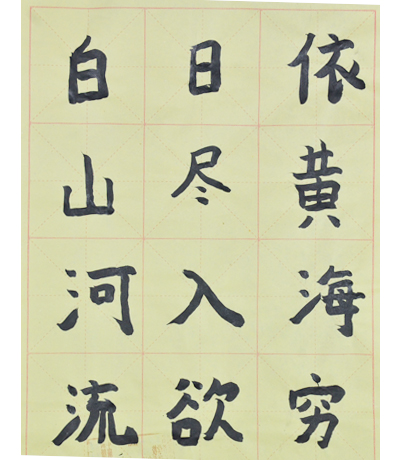 白日依
山尽黄
河入海
流欲穷